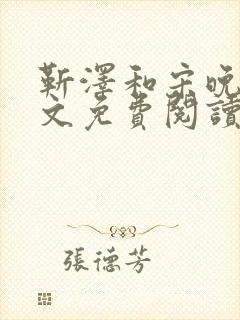 靳澤和宋晚
文免費閱讀
張德芳